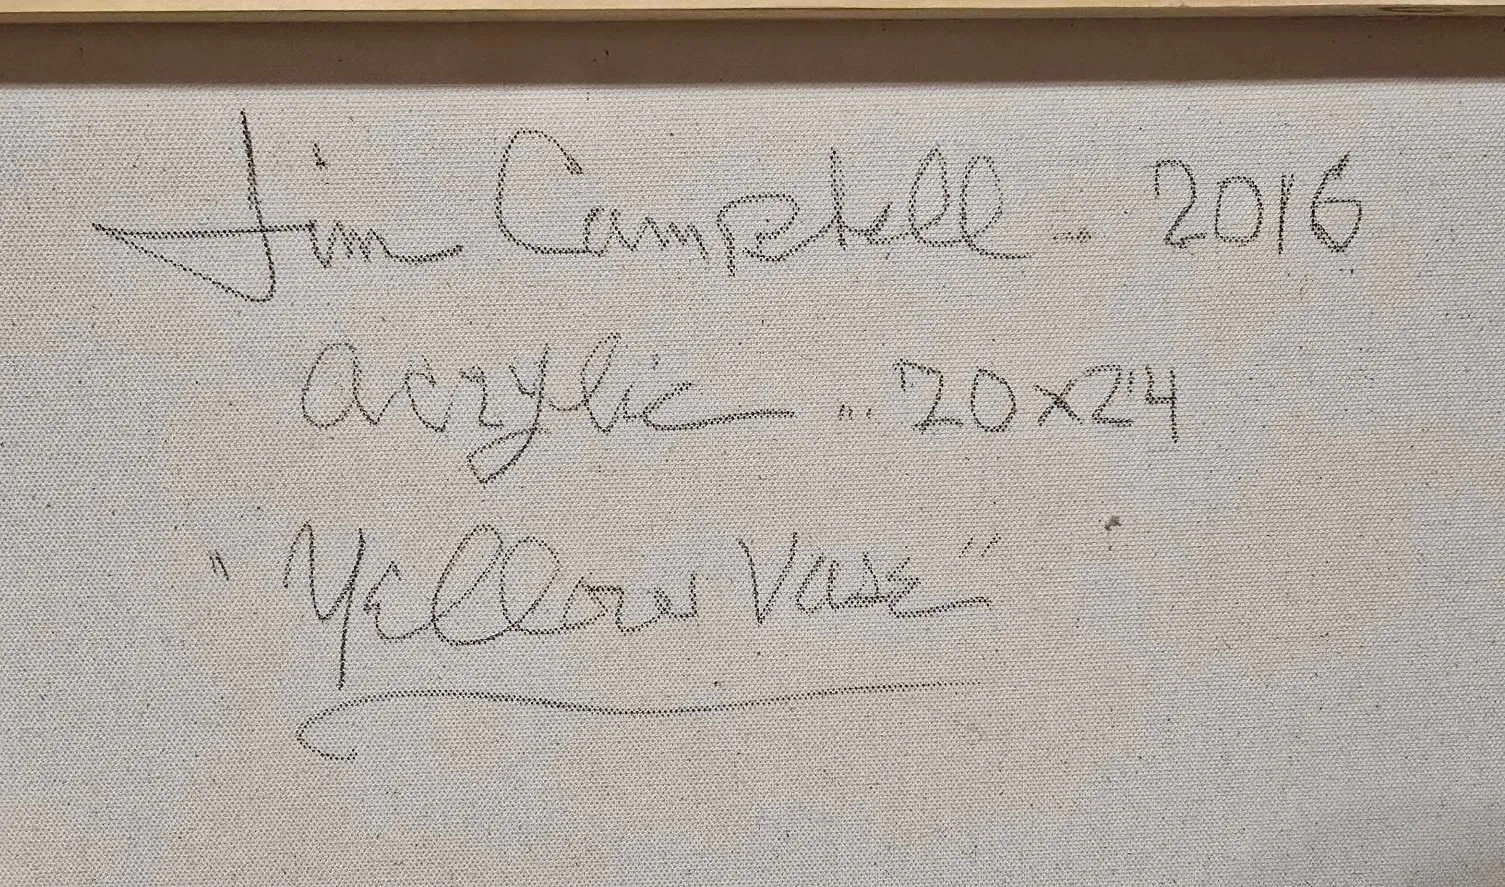 Jim Campbell - 2016
acrylic ... 20x24
"Yellow Vase"